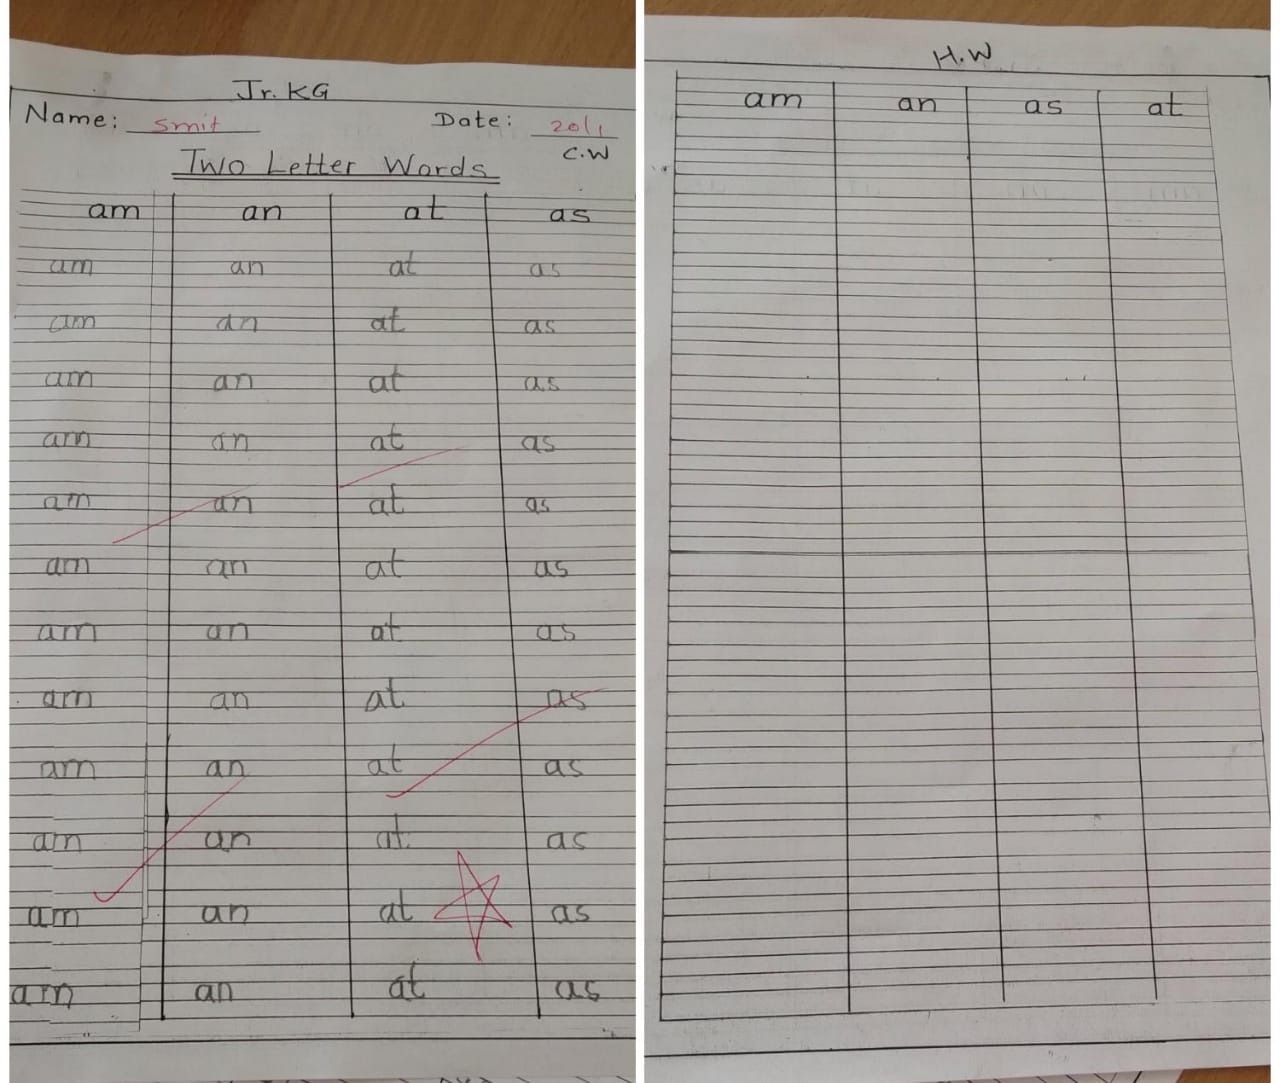 Jr. KG
Name: Smit Date: 20/1
C.W
Two Letter Words
am an at as
am an at as
am an at as
am an at as
am an at as
am an at as
am an at as
am an at as
am an at as
am an at as
am an at as
am an at as
am an at as
H.W
am an as at